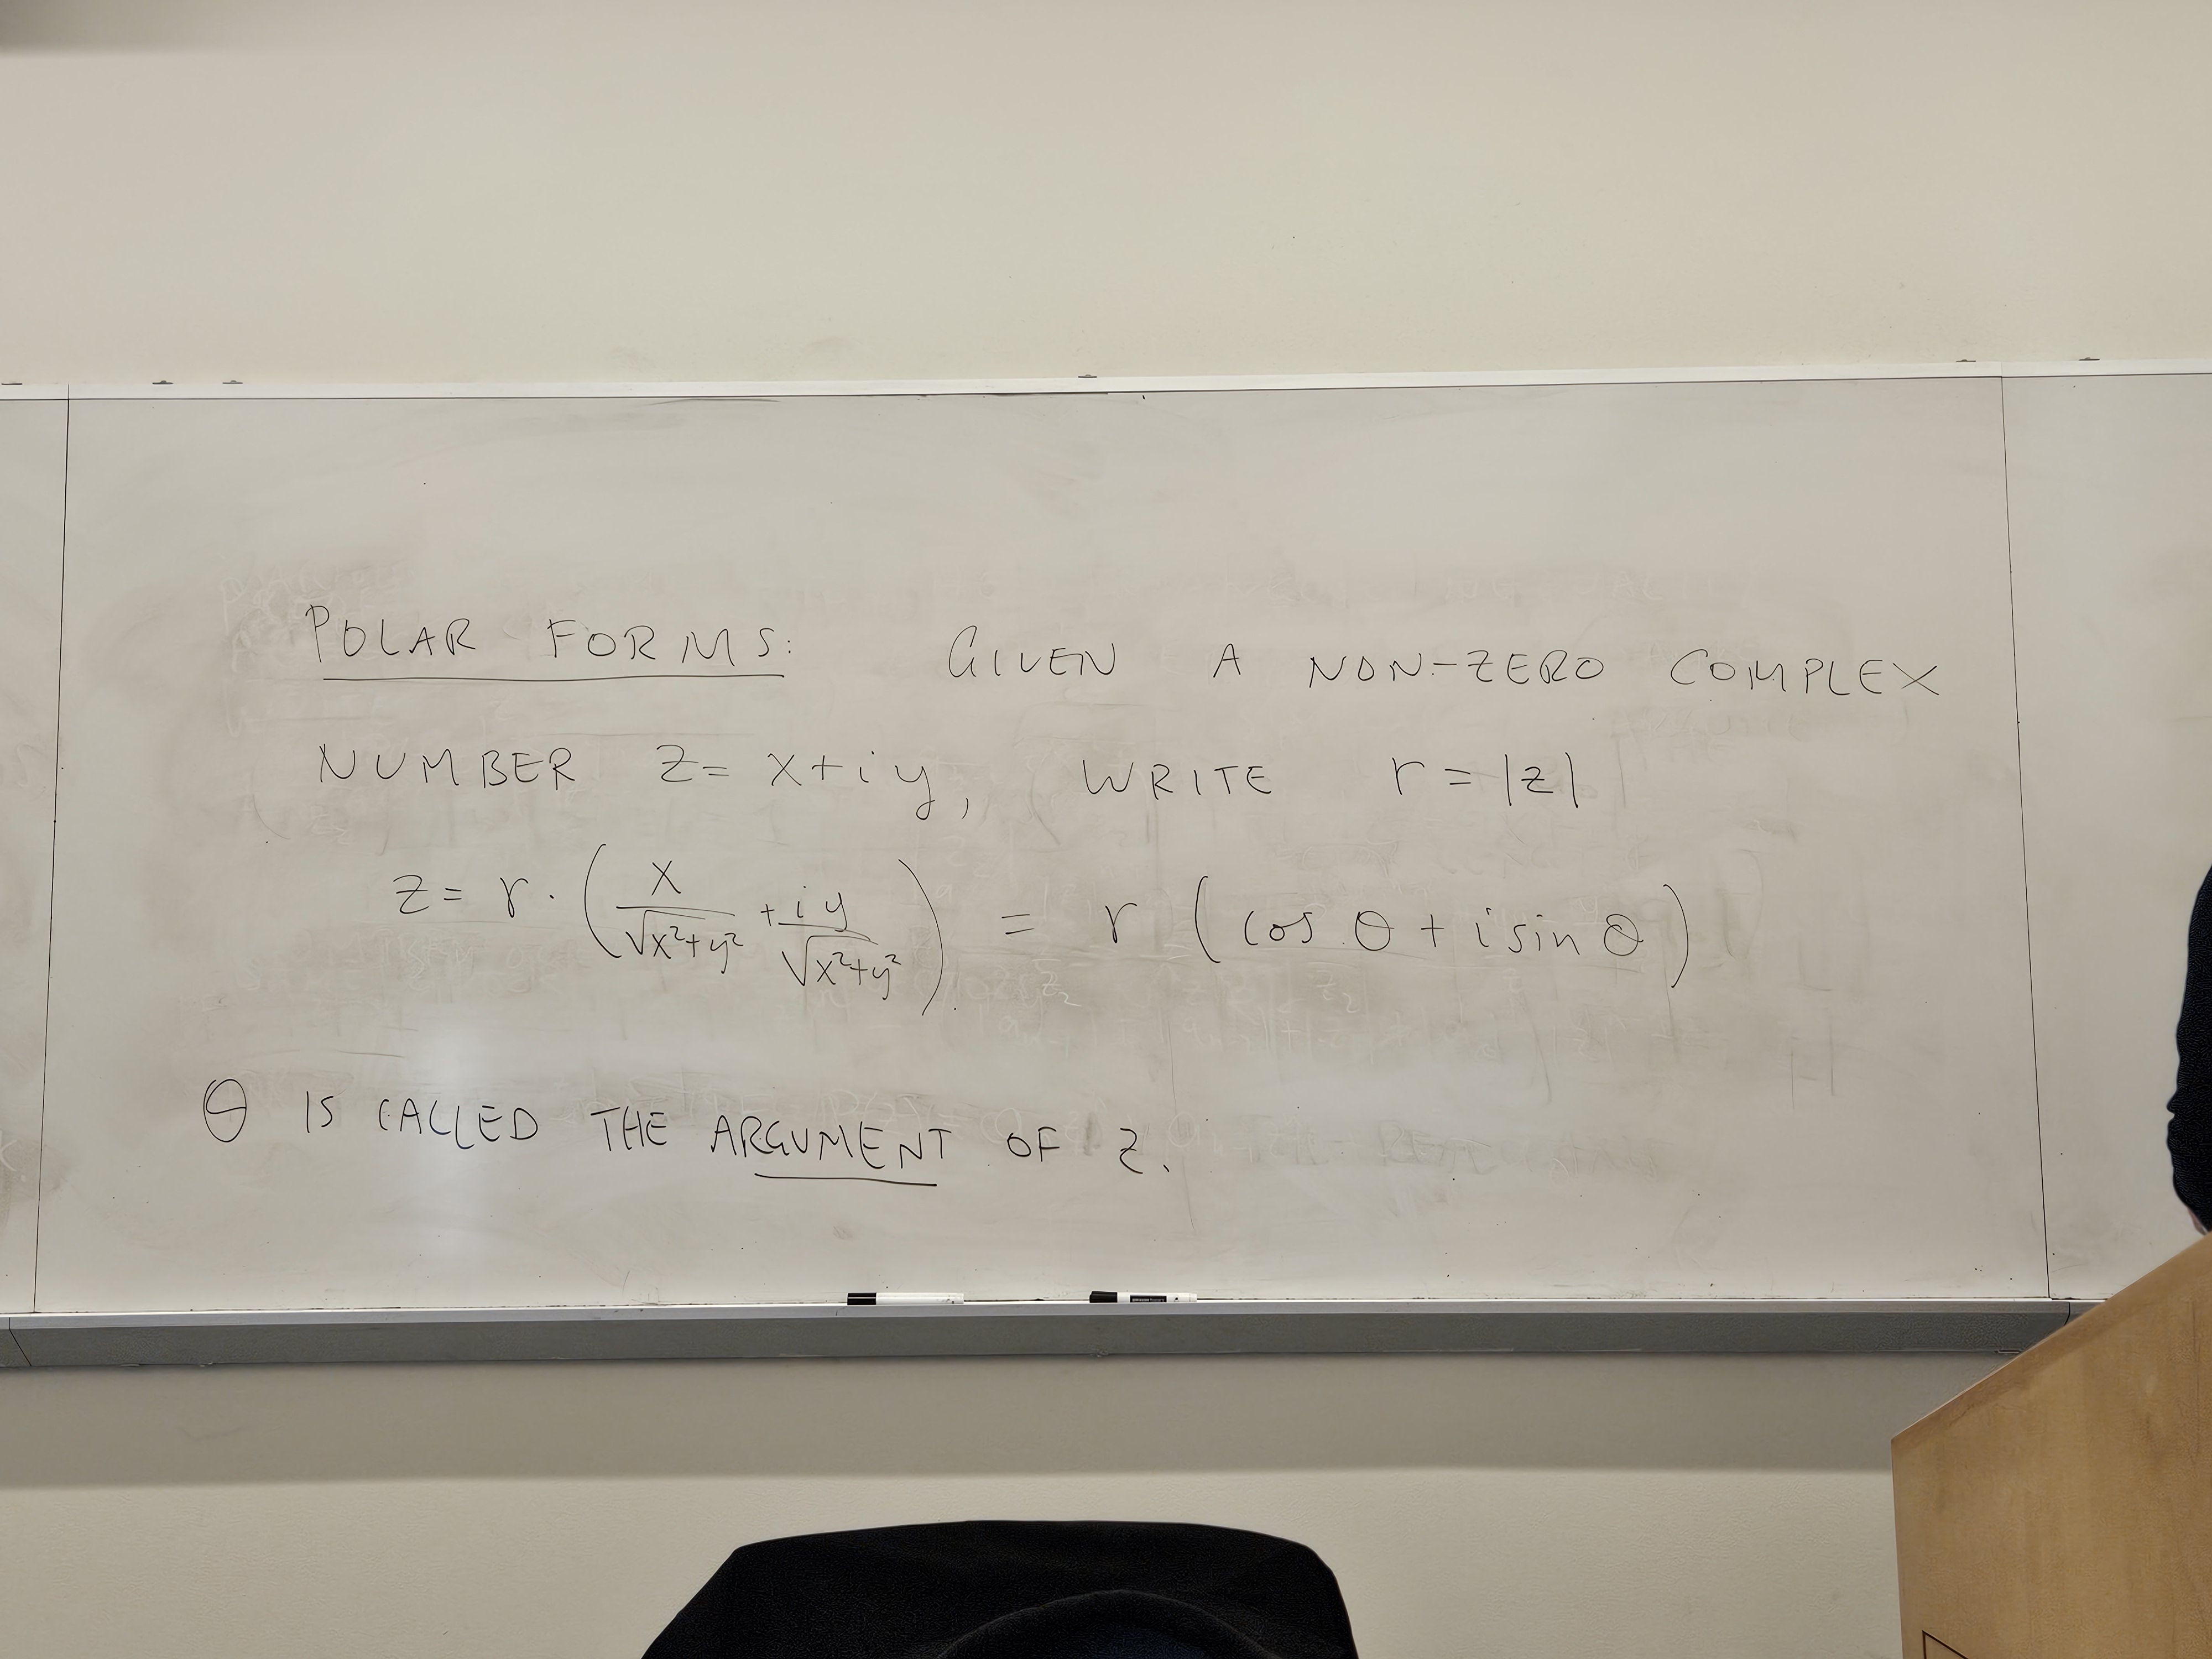 POLAR FORMS: GIVEN A NON-ZERO COMPLEX
NUMBER z = x + iy, WRITE r = |z|
z = r · (x/√(x²+y²) + iy/√(x²+y²)) = r (cos θ + i sin θ)
θ IS CALLED THE ARGUMENT OF z.